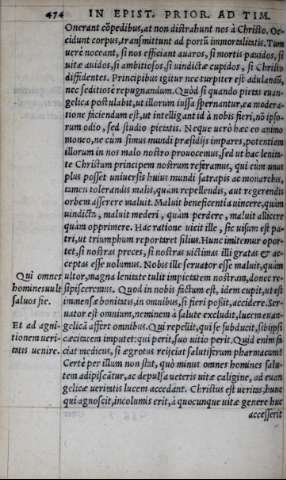 474 IN EPIST. PRIOR. AD TIM.
Onerant cōpedibus, at non distrahunt nos à Christo. Oc-
cidunt corpus, transmittunt ad portū immortalitatis. Tum
uerè noceant, si nos efficiant auaros, si mortis pauidos, si
uitæ auidos, si ambitiosos, si uindictæ cupidos, si Christo
diffidentes. Principibus igitur nec turpiter est adulandū,
nec seditiosè repugnandum. Quòd si quando pietas euan-
gelica postulabit, ut illorum iussa spernantur, ea modera-
tione faciendum est, ut intelligant id à nobis fieri, nō ipso-
rum odio, sed studio pietatis. Neque uerò hæc eo animo
moneo, ne cùm simus mundi præsidijs impares, potentiem
illorum in nos malo nostro prouocemus, sed ut hac lenita-
te Christum principem nostrum referamus, qui cùm unus
plus posset uniuersis huius mundi satrapis ac monarchis,
tamen tolerandis malis, quàm repellendis, aut regerendis
orbem asserere maluit. Maluit beneficentia uincere, quàm
uindicta, maluit mederi, quàm perdere, maluit allicere
quàm opprimere. Hac ratione uicit ille, sic uisum est pa-
tri, ut triumphum reportaret filius. Hunc imitemur opor-
tet, si nostras preces, si nostras uictimas illi gratas & ac-
ceptas esse uolumus. Nobis ille seruator esse maluit, quàm
Qui omnes ultor, magna lenitate tulit impietatem nostram, donec re-
homines uult sipisceremus. Quod in nobis factum est, idem cupit, ut est
saluos fie. immensæ bonitatis, in omnibus, si fieri possit, accidere. Ser-
uator est omnium, neminem à salute excludit, lucem euan-
Et ad agni- gelicā affert omnibus. Qui repellit, qui se subducit, sibi ipsi
tionem ueri- cæcitatem imputet: qui perit, suo uitio perit. Quid enim fa-
tatis uenire. ciat medicus, si ægrotus reijciat salutiferum pharmacum?
Certè per illum non stat, quò minus omnes homines salu-
tem adipiscātur, ac depulsa ueteris uitæ caligine, ad euan
gelicæ ueritatis lucem accedant. Christus est ueritas, hunc
qui agnoscit, incolumis erit, à quocunque uitæ genere huc
accesserit